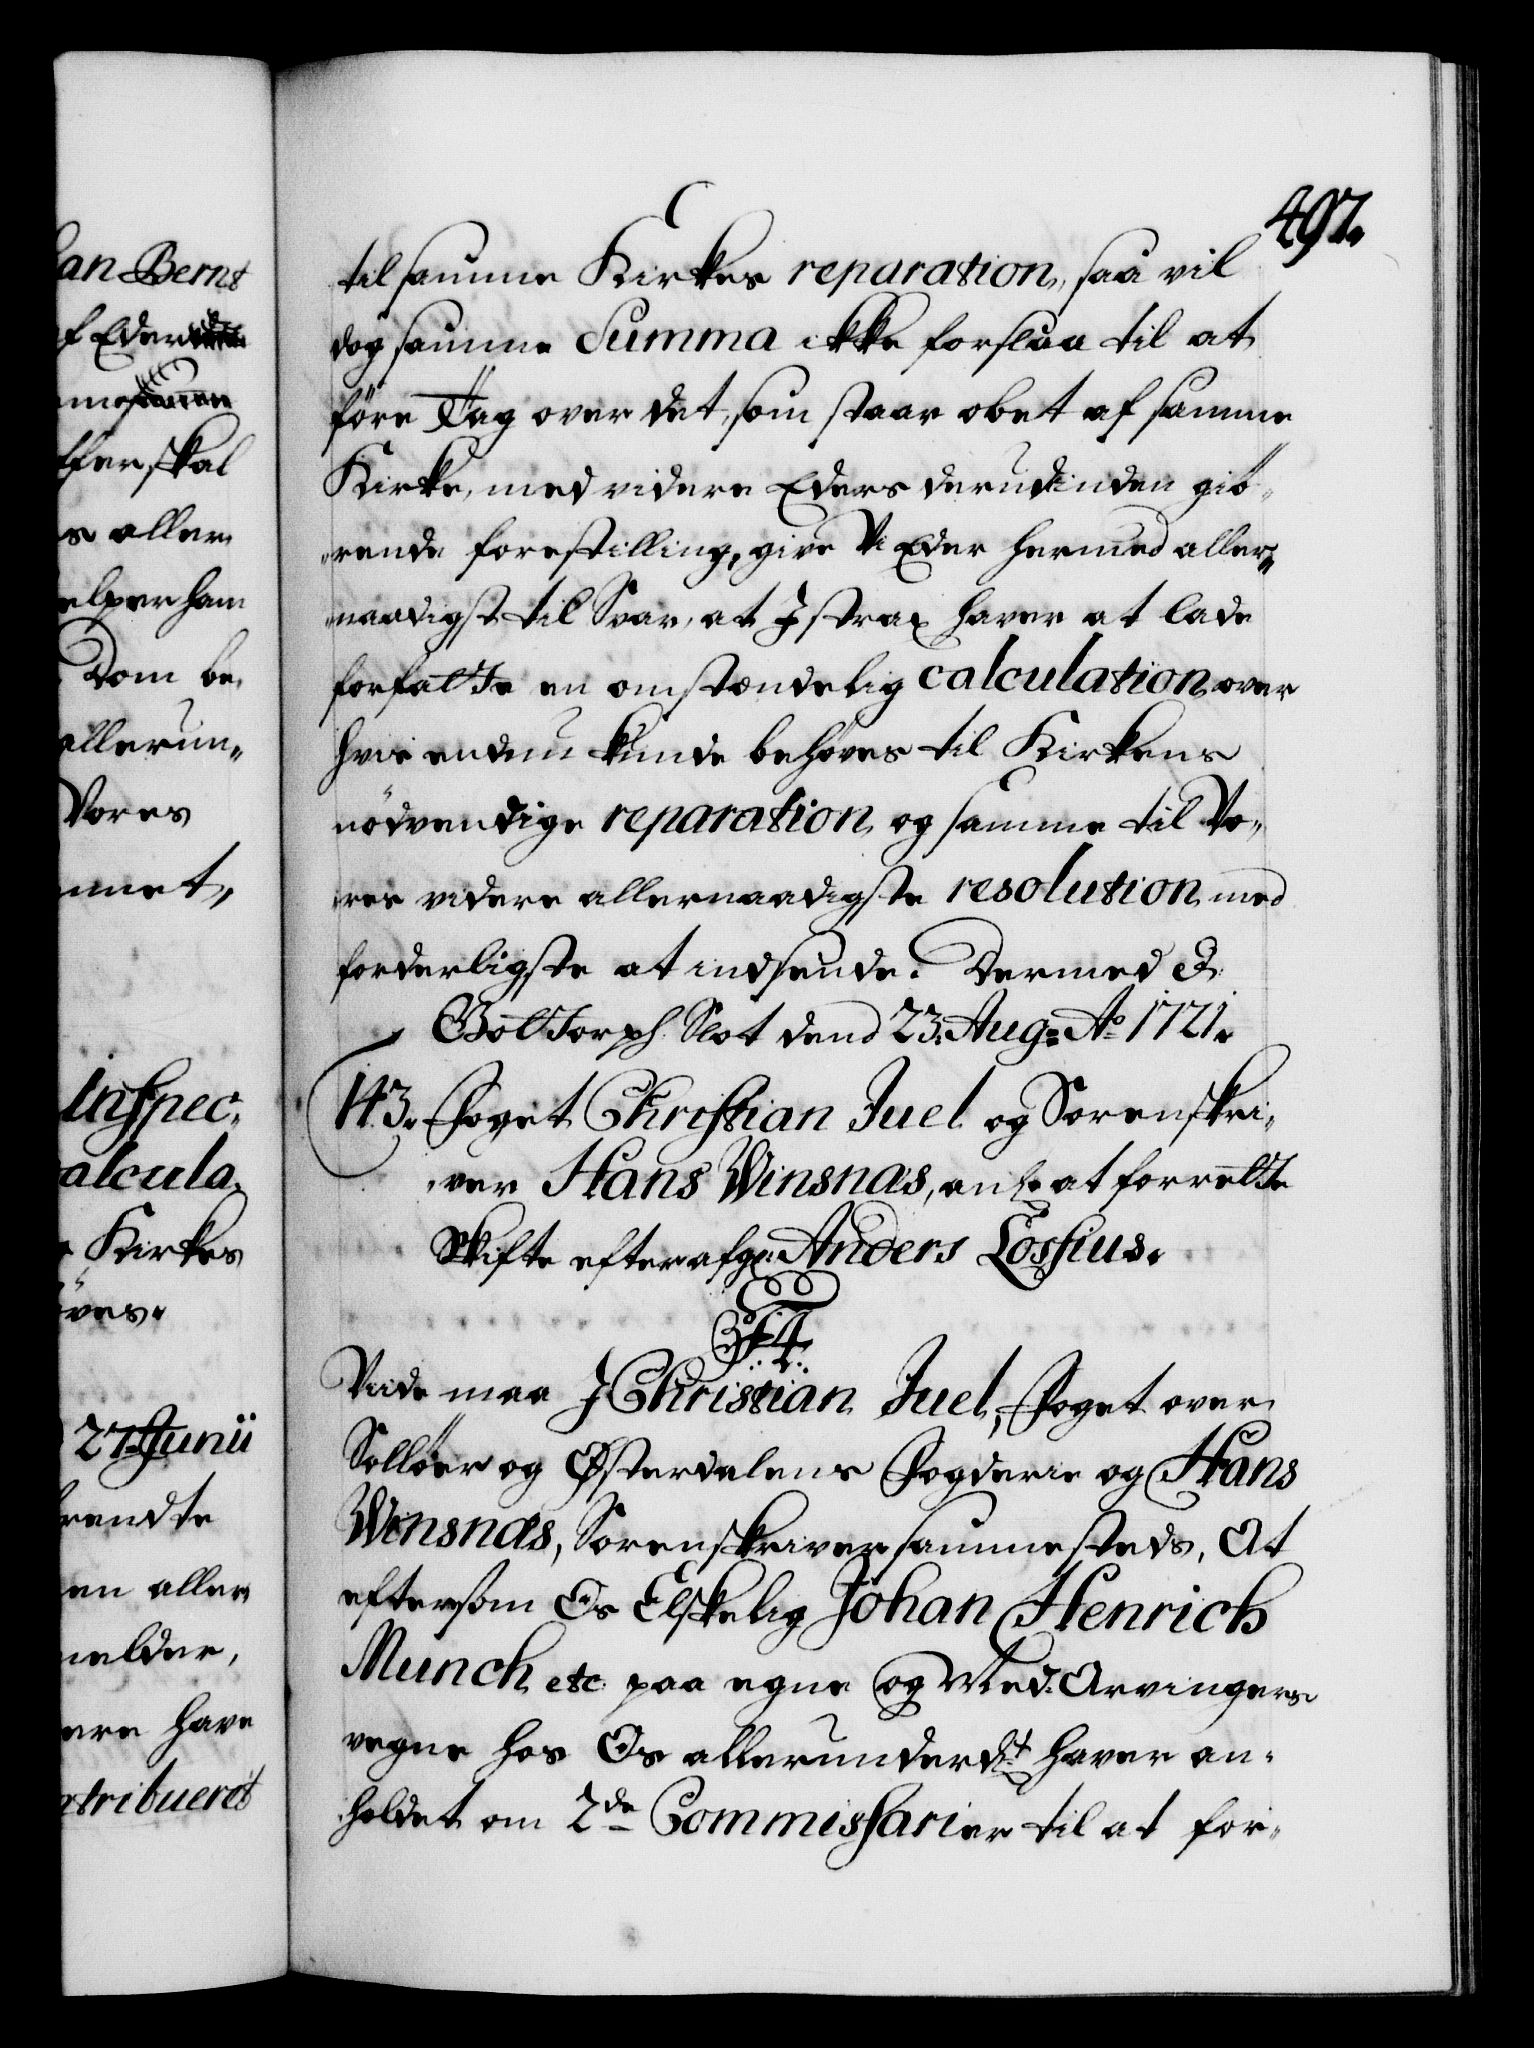 497.
til samme Kirkes reparation, saa vil
dog samme Summa ikke forslaa til at
före Tag over det, som staar obet af samme
Kirke, med videre Eders derudinden giö„
„rende forestilling, give Vi Eder hermed aller„
naadigst til Svar, at I strax haver at lade
forfatte en omstændelig calculation over
hvis endnu kunde behöves til Kirkens
nödvendige reparation, og samme til Vo„
res videre allernaadigste resolution med
forderligste at indsende. Dermed &
Gottorph Slot dend 23. Aug: Ao 1721.
143. Foget Christian Juel og Sorenskri„
„ver Hans Winsnæs, anl. at forrette
Skifte efter afg: Anders Lossius.
F4.
Viide maa I Christian Juel, Foget over
Solloer og Østerdalens Fogderie og Hans
Winsnæs, Sorenskriver sammesteds, At
eftersom Os Elskelig Johan Henrich
Munch etc. paa egne og Med-Arvingers
vegne hos Os allerunderdt. haver an„
holdet om 2de Commissarier til at for„
an Bernt
f Eder
ffer skal
s aller
elper ham
Dom be„
allerun„
Vores
Inspec„
alcula„
Kirkes
öves.
27. Junii
rendte
en aller
melder,
ere have
tribueret